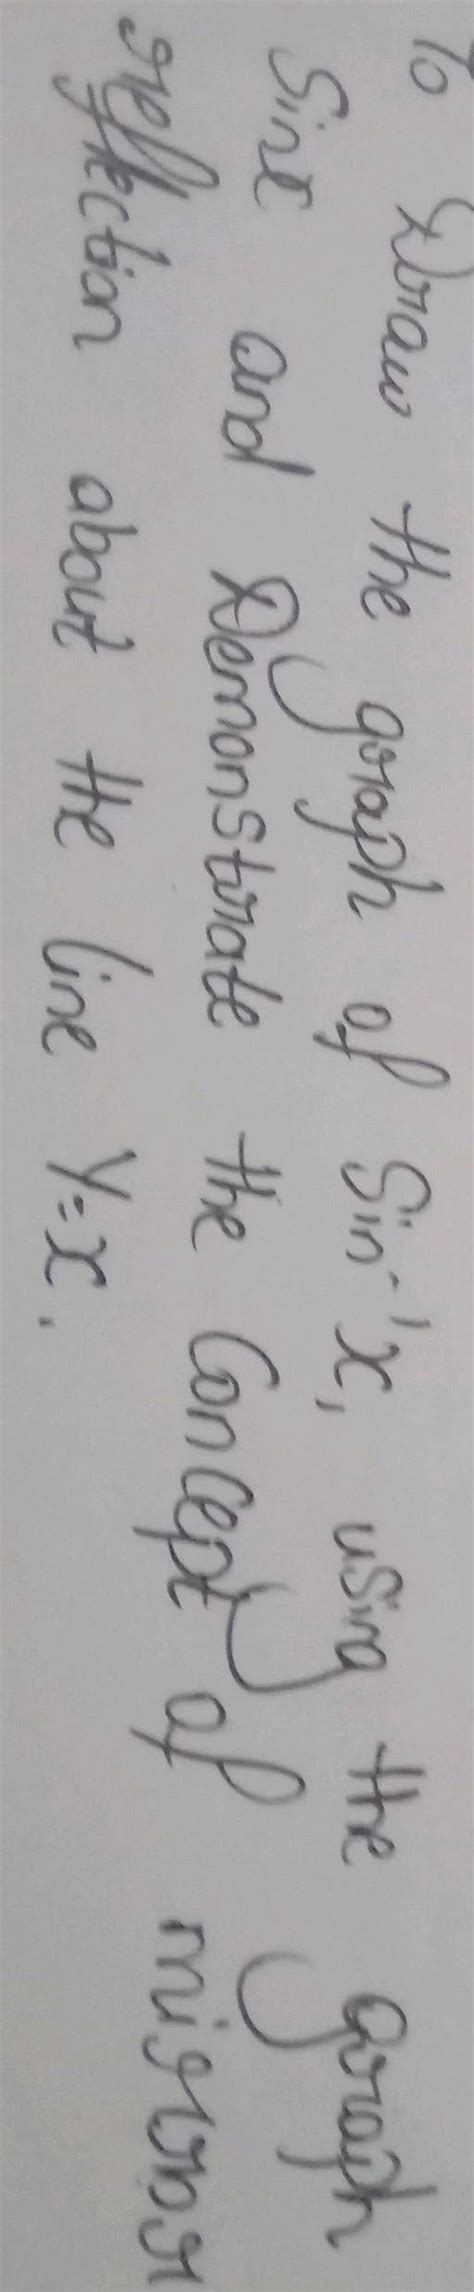 To Draw the graph of Sin⁻¹x, using the graph
Sinx and Demonstrate the Concept of mirror
reflection about the line Y=x.